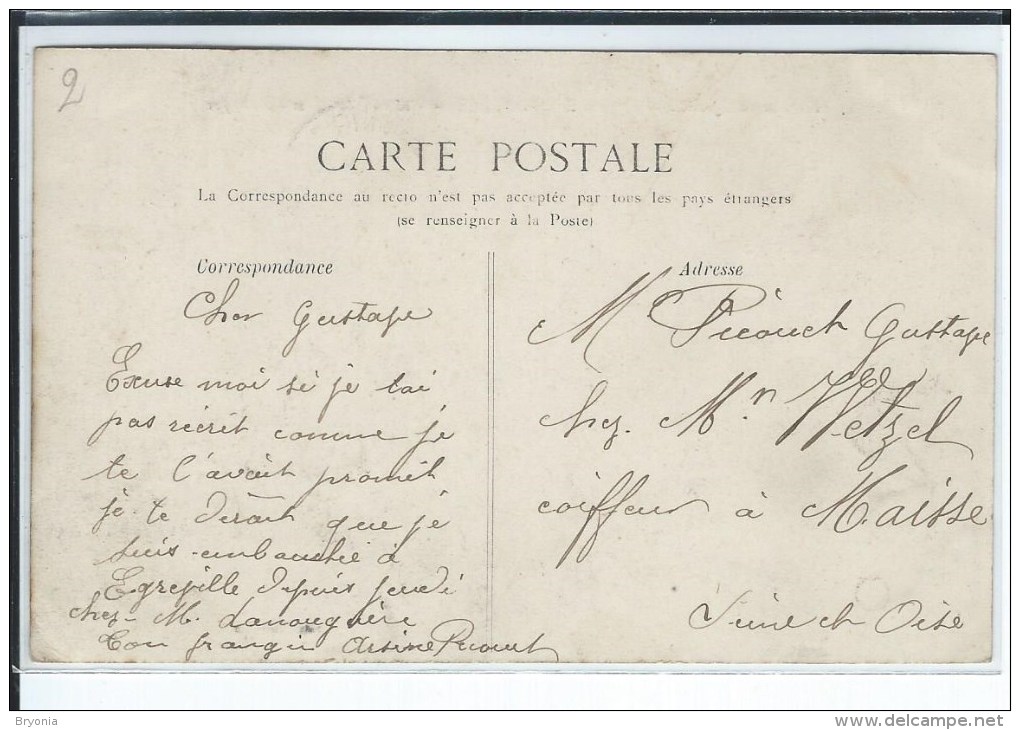 2
CARTE POSTALE
La Correspondance au recto n'est pas acceptée par tous les pays étrangers
(se renseigner à la Poste)
Correspondance
Cher Gustave
Excuse moi si je tai
pas récrit comme je
te l'avait promit
je te dirait que je
suis embauché à
Egreville depuis jeudi
chez M. Lanouguère
Ton frangin Arsine Picouet
Adresse
M. Picouet Gustave
chez Mr Wetzel
coiffeur à Maisse
Seine et Oise
Bryonia
www.delcampe.net